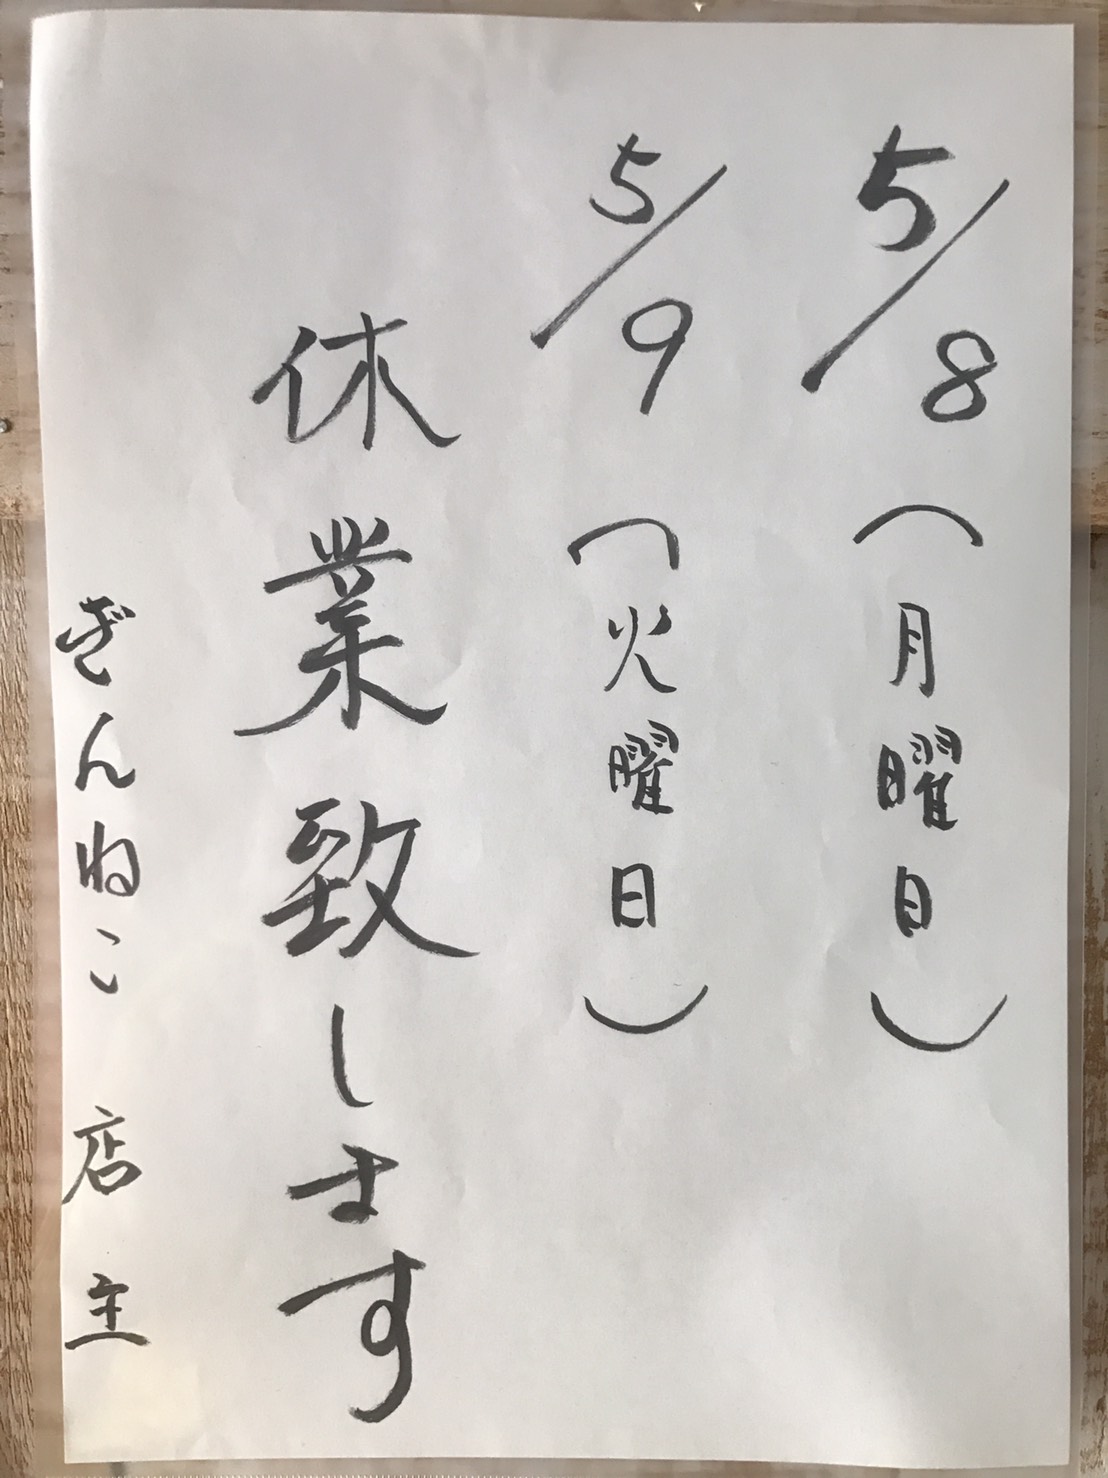 5/8（月曜日）
5/9（火曜日）
休業致します
ぎんねこ 店主